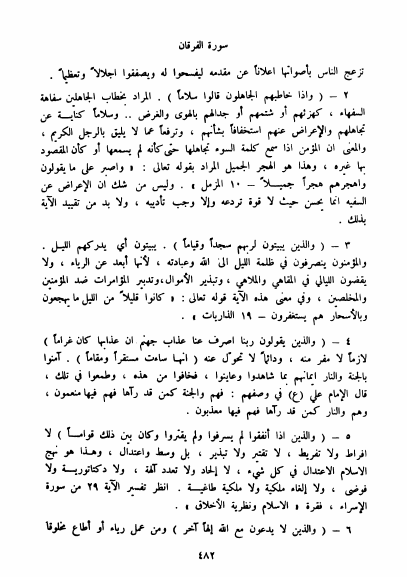 سورة الفرقان
تزعج الناس بأصواتها اعلاناً عن مقدمه ليفسحوا له ويصفقوا اجلالاً وتعظيماً .
٢ – ( واذا خاطبهم الجاهلون قالوا سلاماً ) . المراد بخطاب الجاهلين سفاهة
السفهاء ، كهزئهم أو شتمهم أو جدالهم بالهوى والغرض .. وسلاماً كناية عن
تجاهلهم والإعراض عنهم استخفافاً بشأنهم ، وترفعاً عما لا يليق بالرجل الكريم ،
والمعنى ان المؤمن اذا سمع كلمة السوء تجاهلها حتى كأنه لم يسمعها أو كأن المقصود
بها غيره ، وهذا هو الهجر الجميل المراد بقوله تعالى : « واصبر على ما يقولون
واهجرهم هجراً جميلاً – ١٠ المزمل » . وليس من شك ان الإعراض عن
السفيه انما يحسن حيث لا قوة تردعه وإلا وجب تأديبه ، ولا بد من تقييد الآية
بذلك .
٣ – ( والذين يبيتون لربهم سجداً وقياماً ) . يبيتون أي يدركهم الليل .
والمؤمنون ينصرفون في ظلمة الليل الى الله وعبادته ، لأنها أبعد عن الرياء ، ولا
يقضون الليالي في المقاهي والملاهي ، وتبذير الأموال،وتدبير المؤامرات ضد المؤمنين
والمخلصين ، وفي معنى هذه الآية قوله تعالى : « كانوا قليلاً من الليل ما يهجعون
وبالأسحار هم يستغفرون – ١٩ الذاريات » .
٤ – ( والذين يقولون ربنا اصرف عنا عذاب جهنم ان عذابها كان غراماً )
لازماً لا مفر منه ، ودائماً لا تحوّل عنه ( انها ساءت مستقراً ومقاماً ) . آمنوا
بالجنة والنار ايمانهم بما شاهدوا وعاينوا ، فخافوا من هذه ، وطمعوا في تلك ،
قال الإمام علي (ع) في وصفهم : فهم والجنة كمن قد رآها فهم فيها منعمون ،
وهم والنار كمن قد رآها فهم فيها معذبون .
٥ – ( والذين اذا أنفقوا لم يسرفوا ولم يقتروا وكان بين ذلك قواماً ) لا
افراط ولا تفريط ، لا تقتير ولا تبذير ، بل وسط واعتدال ، وهذا هو نهج
الاسلام الاعتدال في كل شيء ، لا إلحاد ولا تعدد آلهة ، ولا دكتاتورية ولا
فوضى ، ولا إلغاء ملكية ولا ملكية طاغية . انظر تفسير الآية ٢٩ من سورة
الإسراء ، فقرة « الاسلام ونظرية الأخلاق » .
٦ – ( والذين لا يدعون مع الله إلهاً آخر ) ومن عمل رياء أو أطاع مخلوقاً
٤٨٢